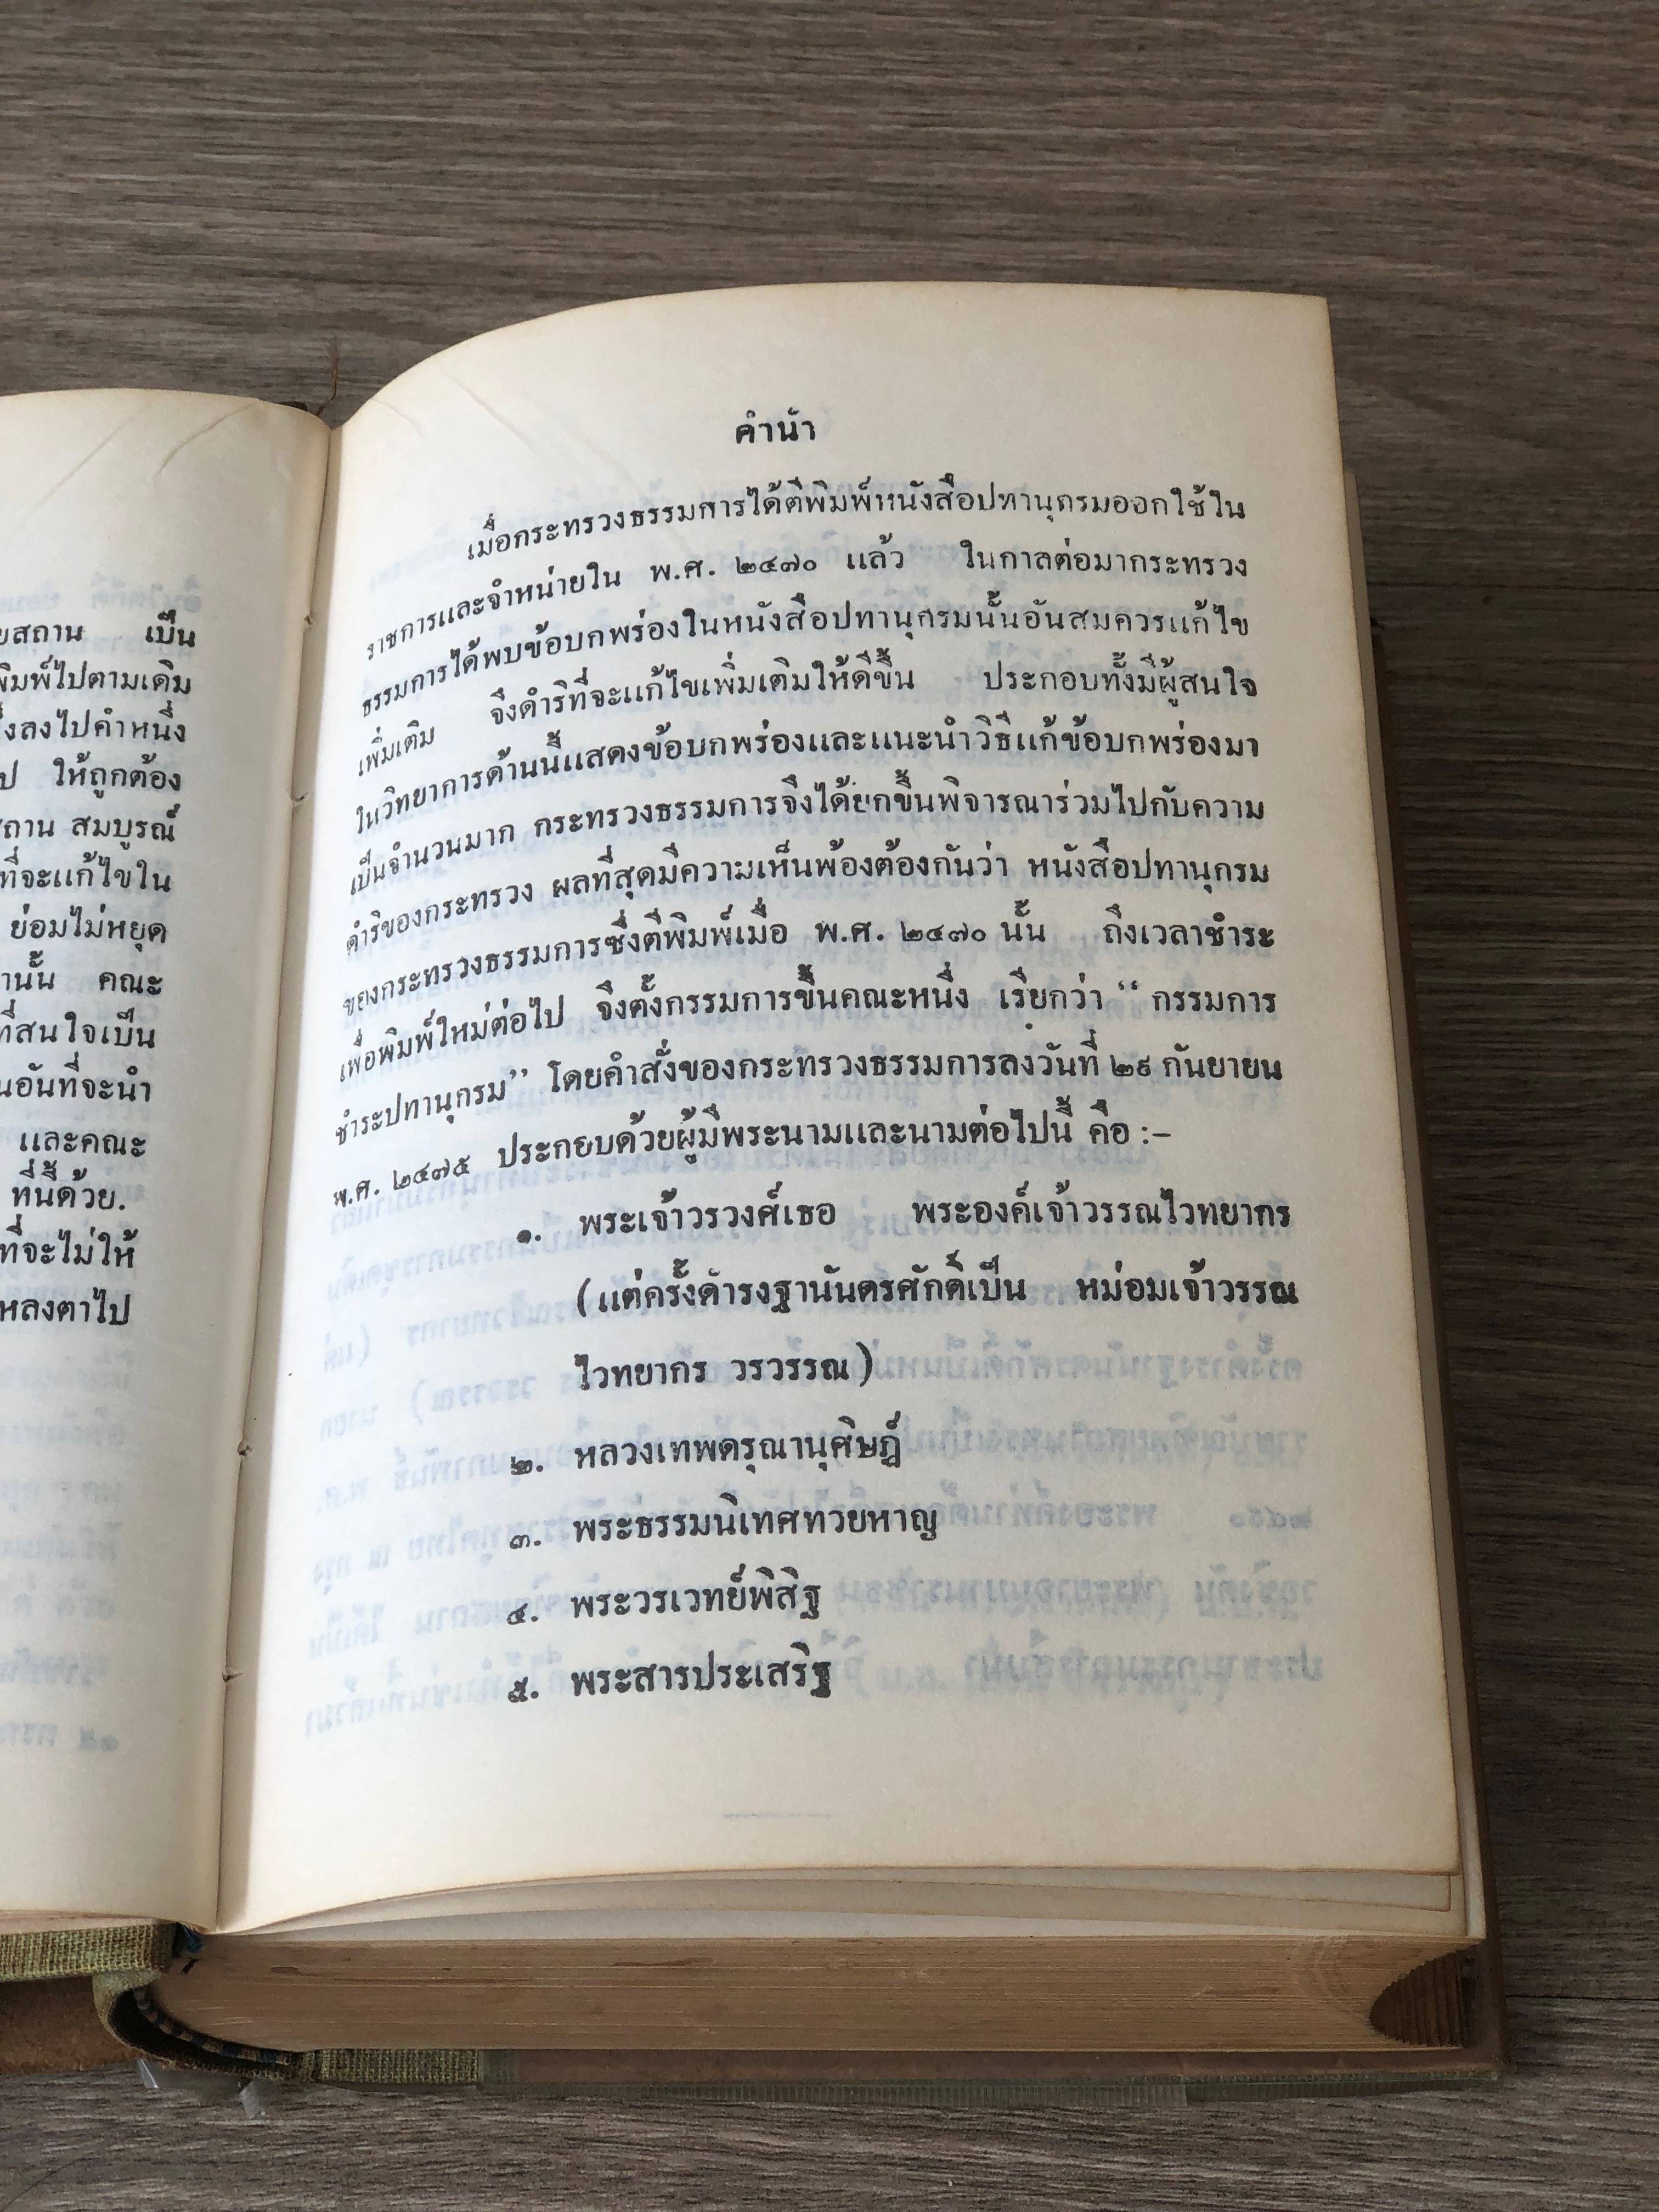 ยสถาน เป็น
พิมพ์ไปตามเดิม
ลงไปคำหนึ่ง
ป ให้ถูกต้อง
สถาน สมบูรณ์
ที่จะแก้ไขใน
ย่อมไม่หยุด
านั้น คณะ
ที่สนใจเป็น
นอันที่จะนำ
และคณะ
ที่นี้ด้วย.
ที่จะไม่ให้
หลงตาไป
คำนำ
เมื่อกระทรวงธรรมการได้ตีพิมพ์หนังสือปทานุกรมออกใช้ใน
ราชการและจำหน่ายใน พ.ศ. ๒๔๗๐ แล้ว ในกาลต่อมากระทรวง
ธรรมการได้พบข้อบกพร่องในหนังสือปทานุกรมนั้นอันสมควรแก้ไข
เพิ่มเติม จึงดำริที่จะแก้ไขเพิ่มเติมให้ดีขึ้น ประกอบทั้งมีผู้สนใจ
ในวิทยาการด้านนี้แสดงข้อบกพร่องและแนะนำวิธีแก้ข้อบกพร่องมา
เป็นจำนวนมาก กระทรวงธรรมการจึงได้ยกขึ้นพิจารณาร่วมไปกับความ
ดำริของกระทรวง ผลที่สุดมีความเห็นพ้องต้องกันว่า หนังสือปทานุกรม
ของกระทรวงธรรมการซึ่งตีพิมพ์เมื่อ พ.ศ. ๒๔๗๐ นั้น ถึงเวลาชำระ
เพื่อพิมพ์ใหม่ต่อไป จึงตั้งกรรมการขึ้นคณะหนึ่ง เรียกว่า “ กรรมการ
ชำระปทานุกรม” โดยคำสั่งของกระทรวงธรรมการลงวันที่ ๒๙ กันยายน
พ.ศ. ๒๔๗๕ ประกอบด้วยผู้มีพระนามและนามต่อไปนี้ คือ :–
๑. พระเจ้าวรวงศ์เธอ พระองค์เจ้าวรรณไวทยากร
(แต่ครั้งดำรงฐานันดรศักดิ์เป็น หม่อมเจ้าวรรณ
ไวทยากร วรวรรณ)
๒. หลวงเทพดรุณานุศิษฎ์
๓. พระธรรมนิเทศทวยหาญ
๔. พระวรเวทย์พิสิฐ
๕. พระสารประเสริฐ